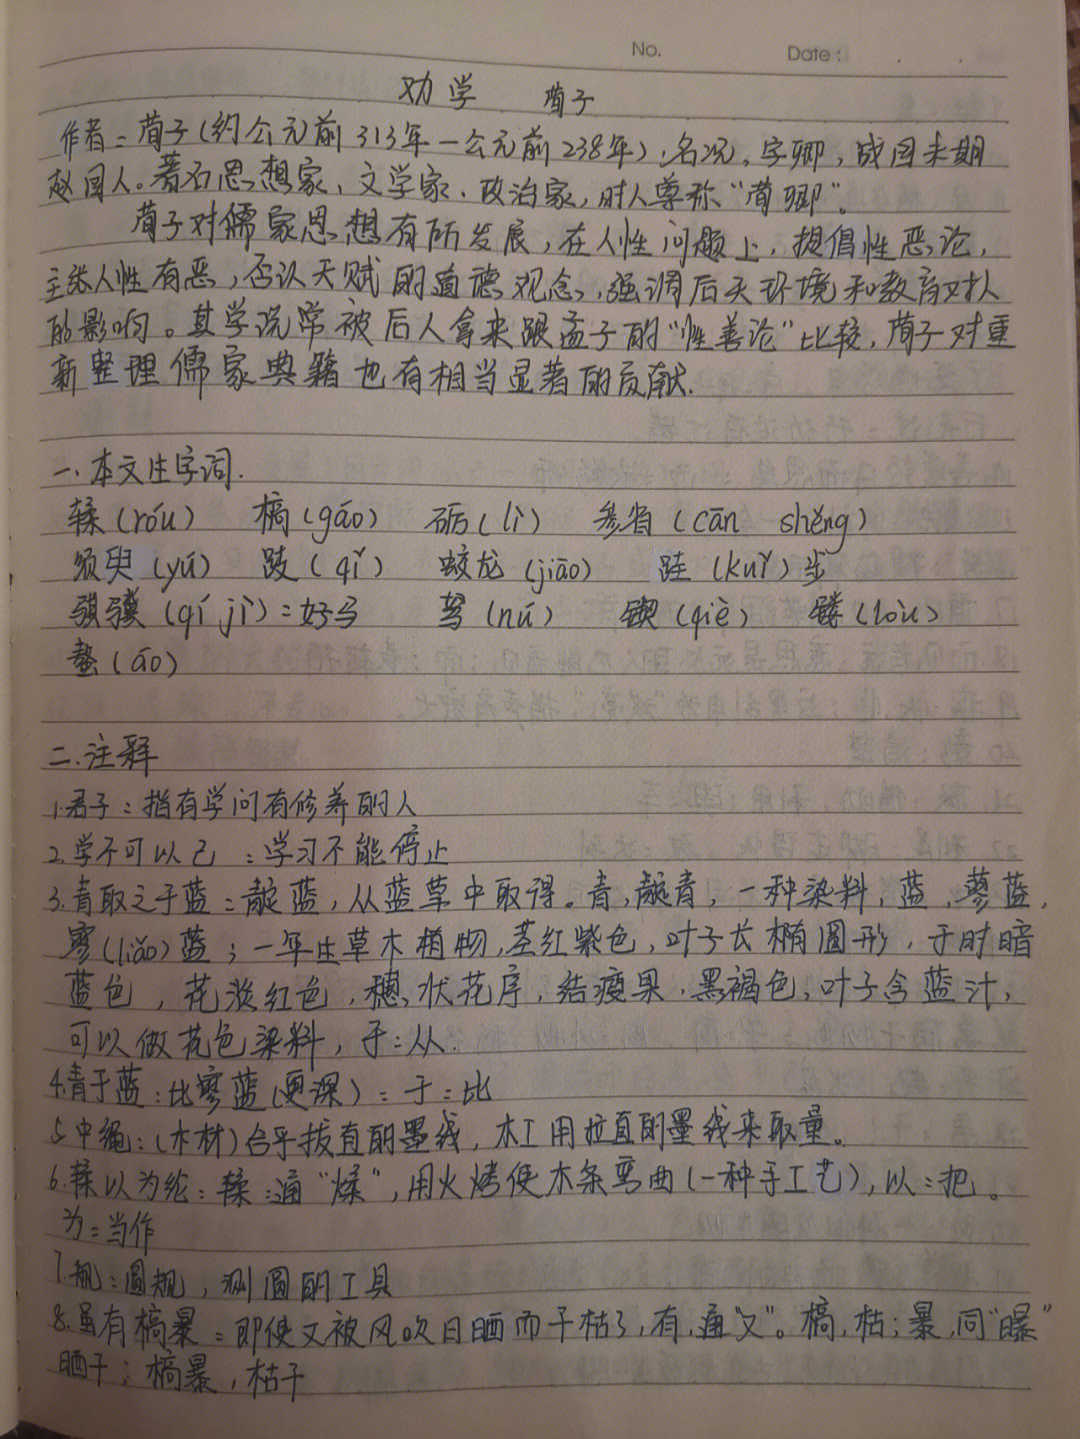 No. Date:
劝学 荀子
作者:荀子(约公元前313年—公元前238年),名况,字卿,战国末期
赵国人。著名思想家、文学家、政治家,时人尊称“荀卿”。
荀子对儒家思想有所发展,在人性问题上,提倡性恶论,
主张人性有恶,否认天赋的道德观念,强调后天环境和教育对人
的影响。其学说常被后人拿来跟孟子的“性善论”比较,荀子对重
新整理儒家典籍也有相当显著的贡献.
一、本文生字词.
鞣(róu) 槁(gǎo) 砺(lì) 参省(cān shěng)
须臾(yú) 跂(qǐ) 蛟龙(jiāo) 跬(kuǐ)步
骐骥(qí jì)=好马 驽(nú) 锲(qiè) 镂(lòu)
螯(áo)
二.注释
1.君子:指有学问有修养的人
2.学不可以已:学习不能停止
3.青取之于蓝:靛蓝,从蓝草中取得。青,靛青,一种染料,蓝,蓼蓝,
蓼(liǎo)蓝;一年生草木植物,茎红紫色,叶子长椭圆形,干时暗
蓝色,花淡红色,穗状花序,结瘦果,黑褐色,叶子含蓝汁,
可以做蓝色染料,于:从.
4.青于蓝:比蓼蓝(更深):于:比
5.中绳:(木材)合乎拔直的墨线,木工用拉直的墨线来取量。
6.鞣以为轮:鞣:通“煣”,用火烤使木条弯曲(一种手工艺),以:把。
为:当作
7.规:圆规,测圆的工具
8.虽有槁暴:即使又被风吹日晒而干枯了,有,通“又”。槁,枯;暴,同“曝”
晒干;槁暴,枯干